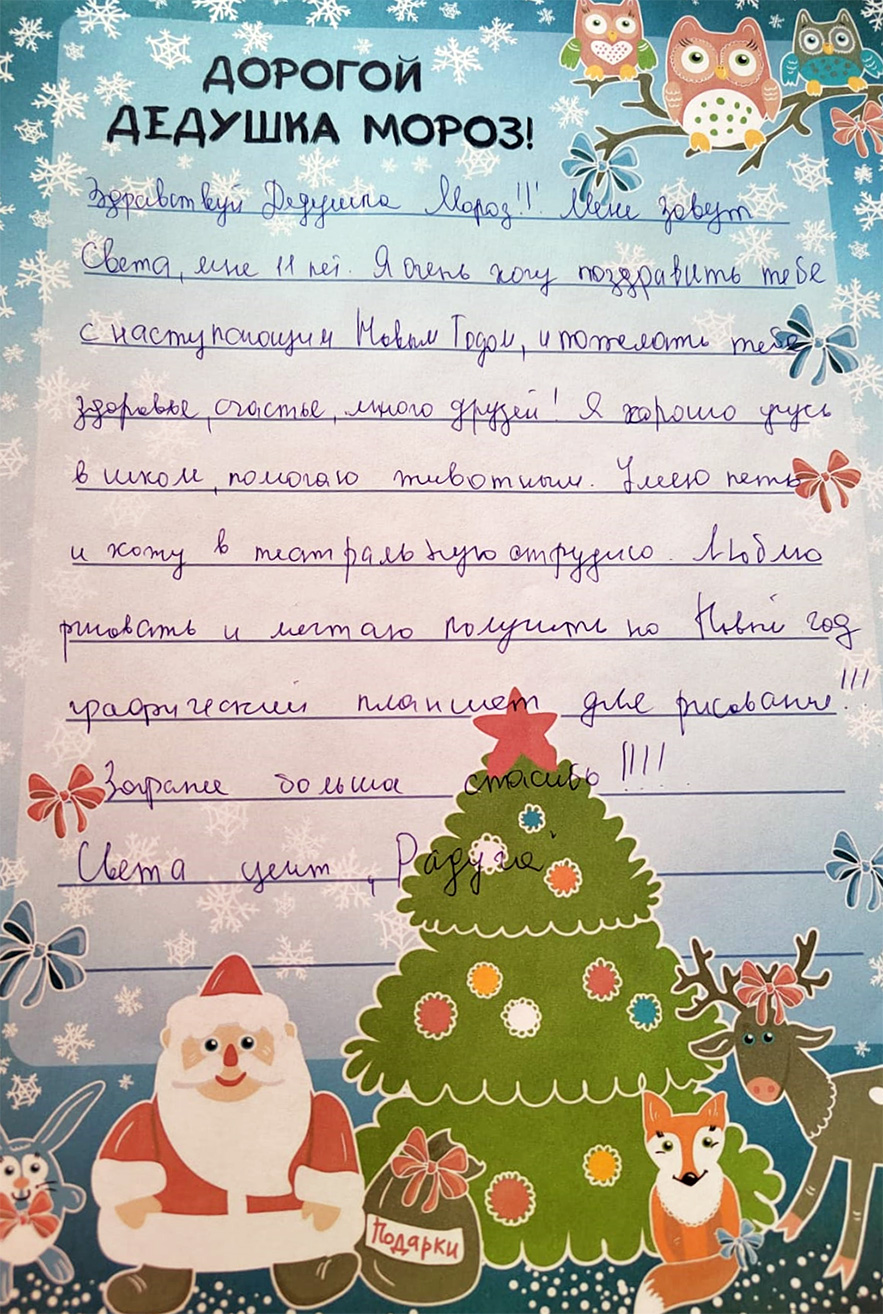 ДОРОГОЙ
ДЕДУШКА МОРОЗ!
Здравствуй Дедушка Мороз!!! Меня зовут
Света, мне 11 лет. Я очень хочу поздравить тебе
с наступающим Новым Годом, и пожелать тебе
здоровье, счастье, много друзей! Я хорошо учусь
в школ, помогаю животным. Умею петь
и хожу в театральную струдию. Люблю
рисовать и мечтаю получить на Новый год
графический планшет для рисования!!!
Заранее больша спасибо !!!!
Света цент „Радуга"
Подарки